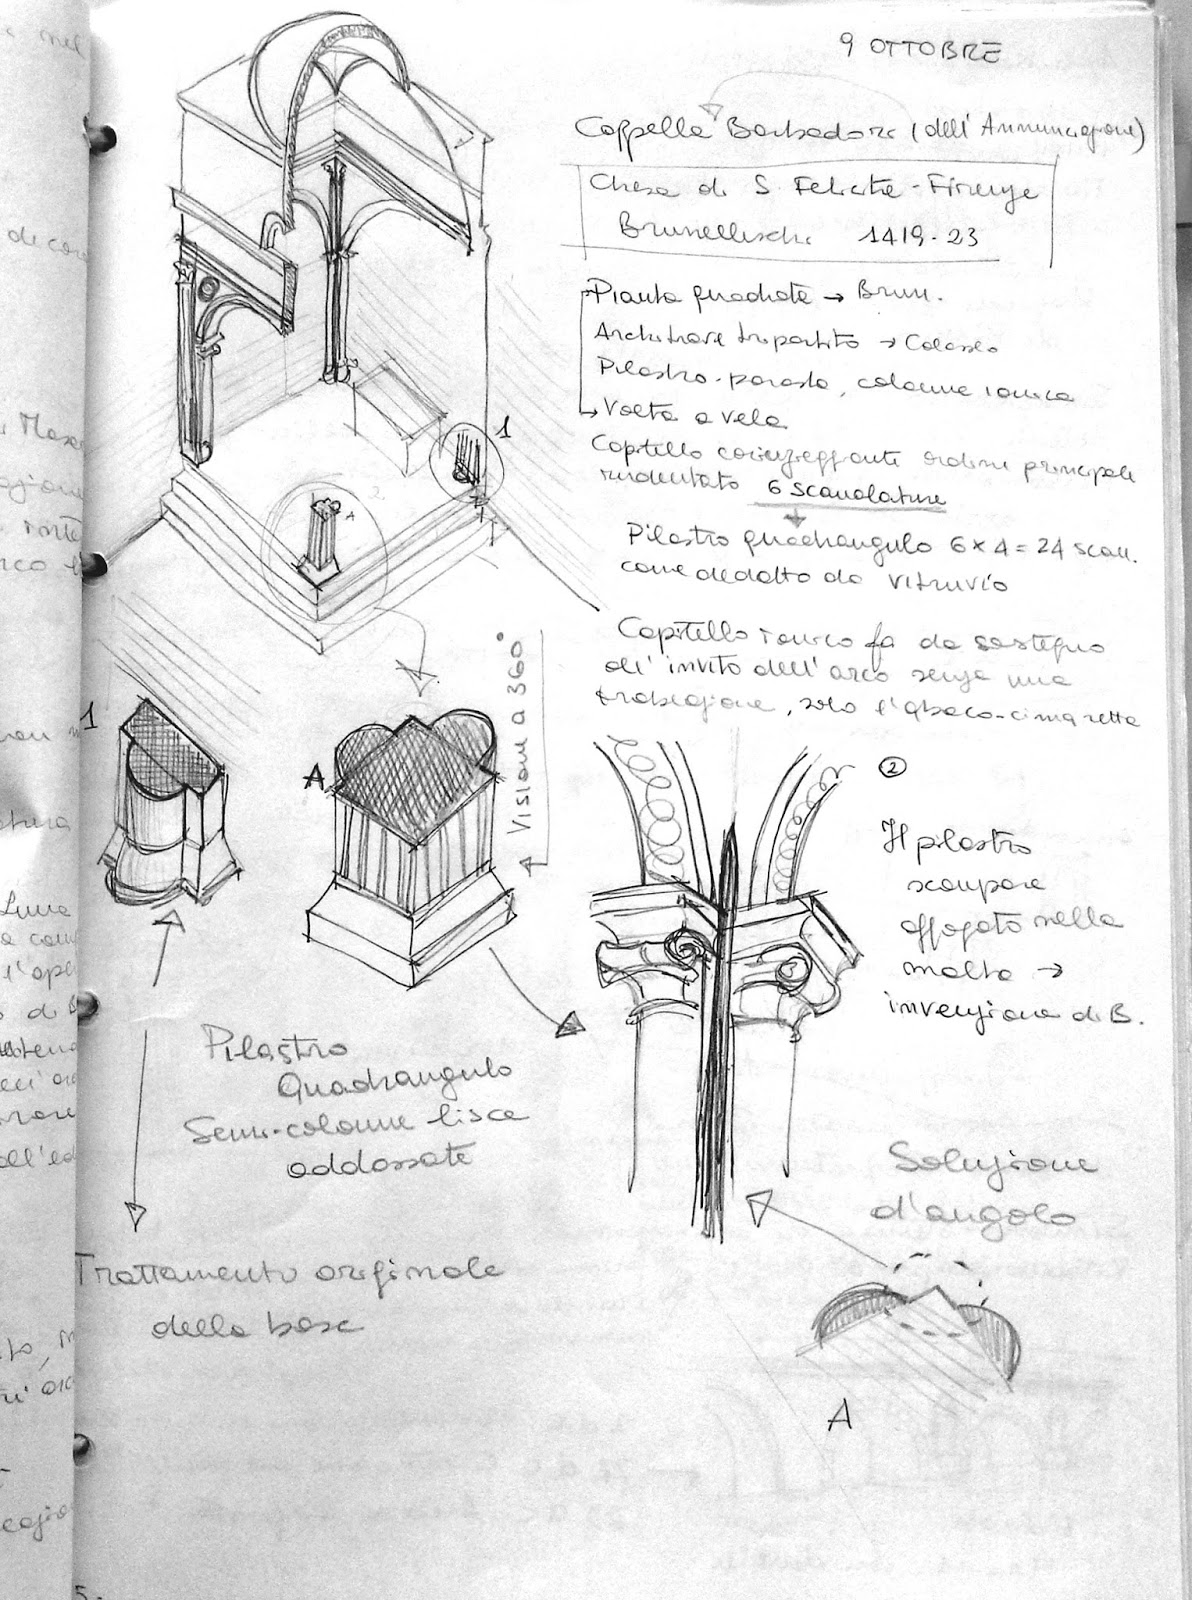 9 OTTOBRE
Cappella Barbadori (dell'Annunciazione)
Chiesa di S. Felicita - Firenze
Brunelleschi 1419-23
Pianta quadrata → Brun.
Architrave tripartito → Colosseo
Pilastro-parasta, colonna ionica
Volta a vela
Capitello corinzieggiante ordine principale
rudentato 6 scanalature
Pilastro quadrangulo 6 x 4 = 24 scan.
come dedotto da Vitruvio
Capitello ionico fa da sostegno
all'invito dell'arco senza una
trabeazione, solo l'abaco-cimasetta
1
2
A
1
A
Visione a 360°
②
Il pilastro
scompare
affogato nella
malta →
invenzione di B.
Pilastro
Quadrangulo
Semi-colonne lisce
addossate
Trattamento originale
della base
Soluzione
d'angolo
A